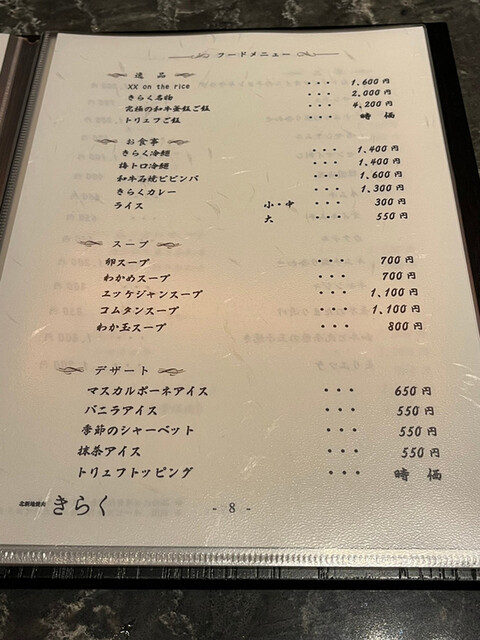 フードメニュー
逸品
XX on the rice ・・・ 1,600円
きらく名物 ・・・ 2,000円
究極の和牛釜飯ご飯 ・・・ 4,200円
トリュフご飯 ・・・ 時価
お食事
きらく冷麺 ・・・ 1,400円
梅トロ冷麺 ・・・ 1,400円
和牛石焼ビビンバ ・・・ 1,600円
きらくカレー ・・・ 1,300円
ライス 小・中 ・・・ 300円
大 ・・・ 550円
スープ
卵スープ ・・・ 700円
わかめスープ ・・・ 700円
ユッケジャンスープ ・・・ 1,100円
コムタンスープ ・・・ 1,100円
わか玉スープ ・・・ 800円
デザート
マスカルポーネアイス ・・・ 650円
バニラアイス ・・・ 550円
季節のシャーベット ・・・ 550円
抹茶アイス ・・・ 550円
トリュフトッピング ・・・ 時価
きらく
- 8 -